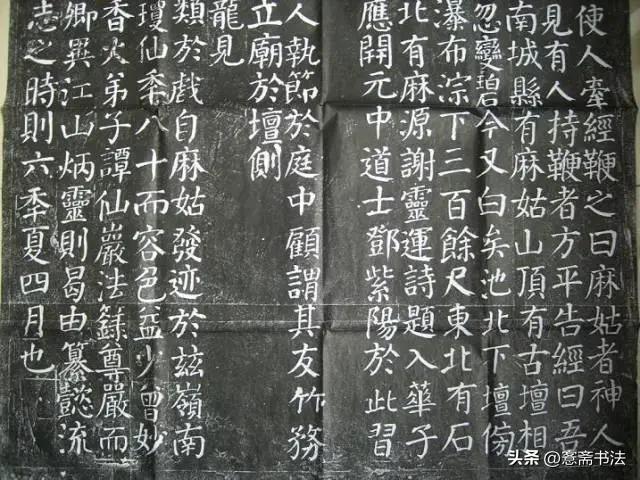 使人牽經鞭之曰麻姑者神人
見有人持鞭者方平告經曰吾
南城縣有麻姑山頂有古壇相
忽變碧今又白矣池北下壇傍
瀑布淙下三百餘尺東北有石
北有麻源謝靈運詩題入華子
應開元中道士鄧紫陽於此習
人執節於庭中顧謂其友竹務
立廟於壇側
龍見
類於戲自麻姑發迹於茲嶺南
瓊仙秊八十而容色益少曾妙
香火弟子譚仙巖法籙尊嚴而
卿異江山炳靈則曷由纂懿流
志之時則六秊夏四月也
头条 @窓斋书法